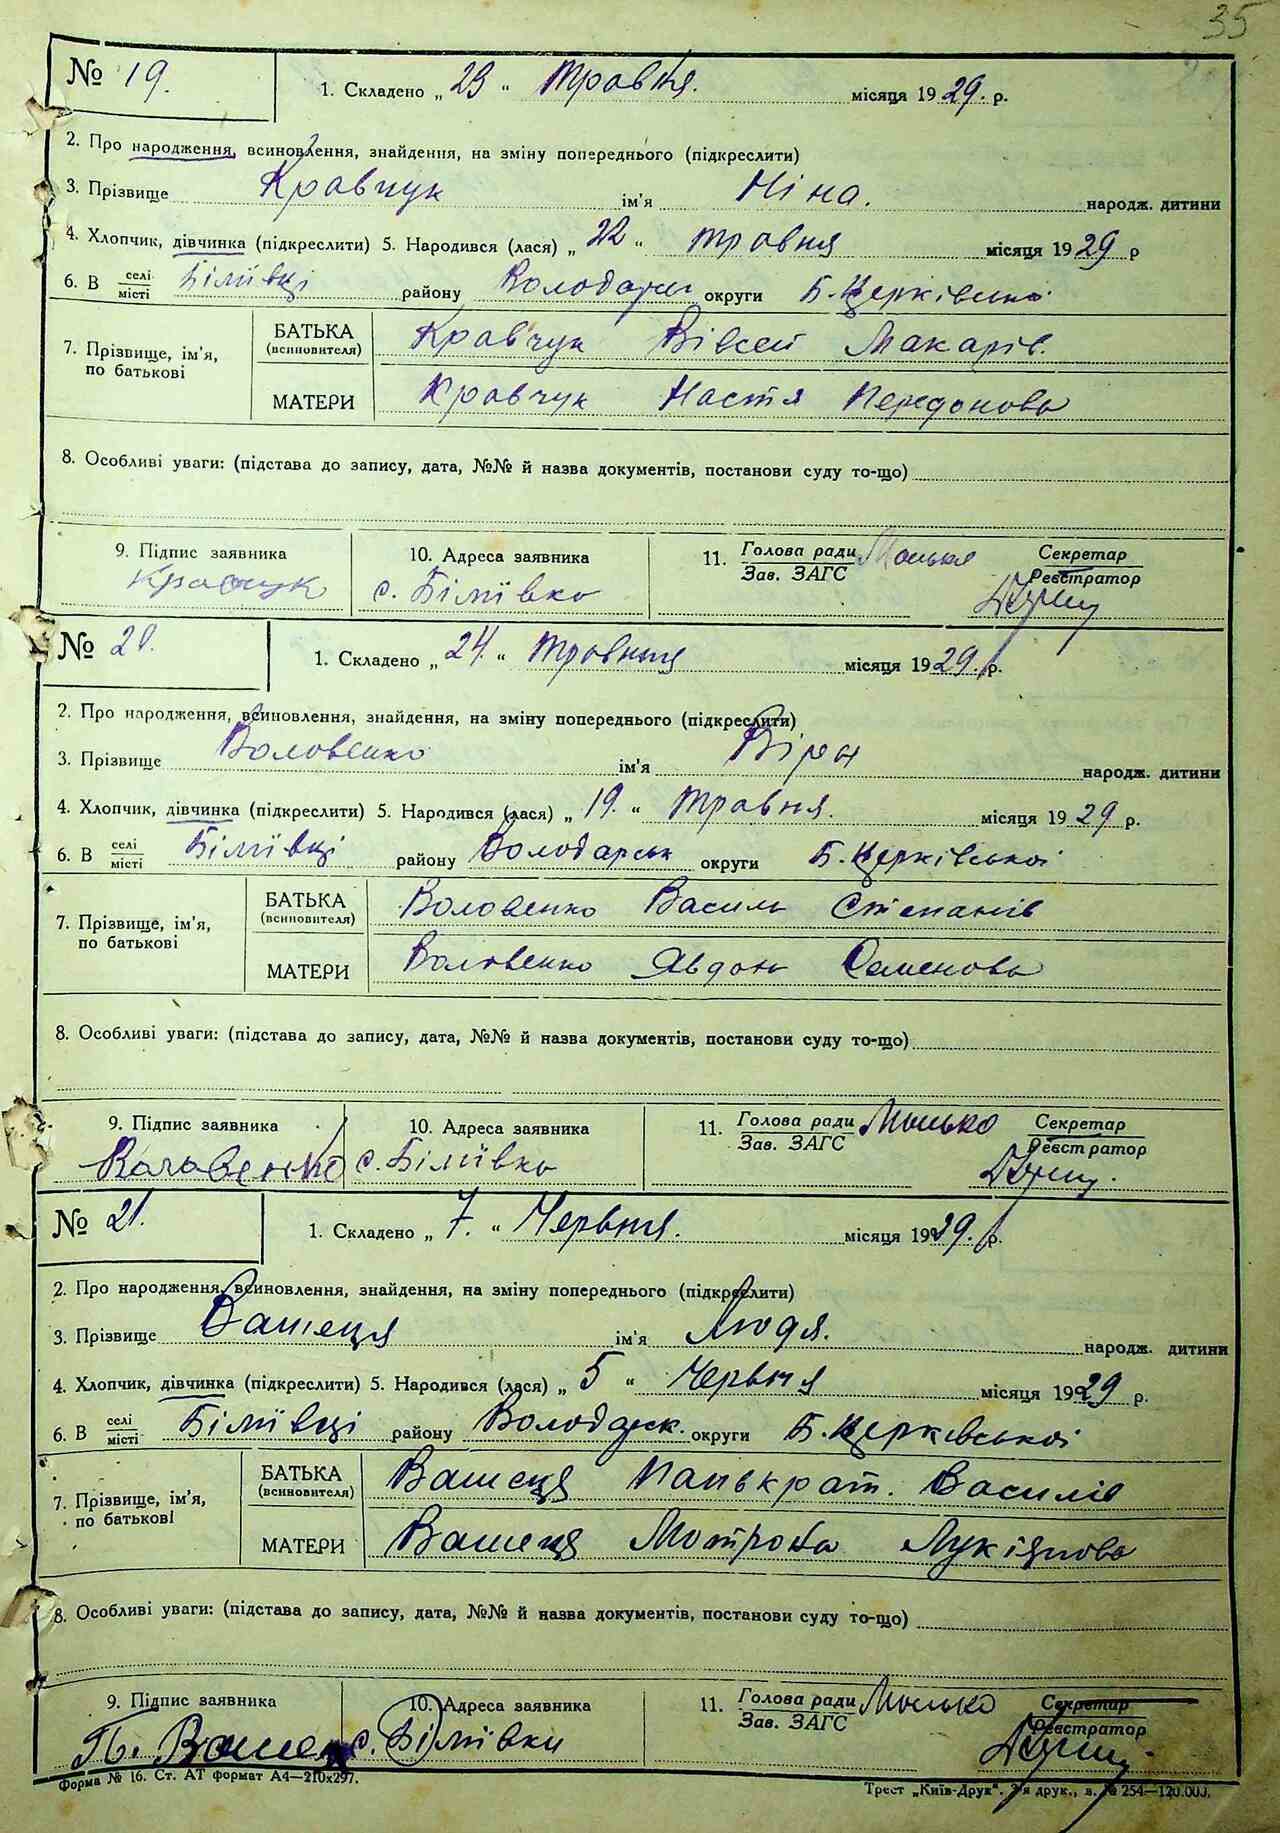 35
№ 19. 1. Складено „ 23 " травня. місяця 1929. р.
2. Про народження, всиновлення, знайдення, на зміну попереднього (підкреслити)
3. Прізвище Кравчук ім'я Ніна. народж. дитини
4. Хлопчик, дівчинка (підкреслити) 5. Народився (лася) „ 22 " травня місяця 1929 р
6. В селі місті Біліївці району Володарськ округи Б. Церківської
7. Прізвище, ім'я, по батькові
БАТЬКА (всиновителя) Кравчук Макарів.
МАТЕРИ Кравчук Настя
8. Особливі уваги: (підстава до запису, дата, №№ й назва документів, постанови суду то-що)
9. Підпис заявника 10. Адреса заявника 11. Голова ради Зав. ЗАГС Секретар Реєстратор
Кравчук с. Біліївка
№ 20. 1. Складено „ 24. " травня місяця 1929. р.
2. Про народження, всиновлення, знайдення, на зміну попереднього (підкреслити)
3. Прізвище Воловенко ім'я Віра народж. дитини
4. Хлопчик, дівчинка (підкреслити) 5. Народився (лася) „ 19. " травня. місяця 1929 р.
6. В селі місті Біліївці району Володарськ округи Б. Церківської
7. Прізвище, ім'я, по батькові
БАТЬКА (всиновителя) Воловенко Василь Степанів
МАТЕРИ Воловенко Явдоха Семенова
8. Особливі уваги: (підстава до запису, дата, №№ й назва документів, постанови суду то-що)
9. Підпис заявника 10. Адреса заявника 11. Голова ради Зав. ЗАГС Секретар Реєстратор
Воловенко с. Біліївка
№ 21. 1. Складено „ 7. " Червня. місяця 1929. р.
2. Про народження, всиновлення, знайдення, на зміну попереднього (підкреслити)
3. Прізвище Вашеця ім'я Людя. народж. дитини
4. Хлопчик, дівчинка (підкреслити) 5. Народився (лася) „ 5 " Червня місяця 1929 р.
6. В селі місті Біліївці району Володарск. округи Б. Церківської
7. Прізвище, ім'я, по батькові
БАТЬКА (всиновителя) Вашеця Панькрат. Василів
МАТЕРИ Вашеця Мотрона Лукіянова
8. Особливі уваги: (підстава до запису, дата, №№ й назва документів, постанови суду то-що)
9. Підпис заявника 10. Адреса заявника 11. Голова ради Зав. ЗАГС Секретар Реєстратор
с. Біліївки
Форма № 16. Ст. АТ формат А4—210х297. Трест „Київ-Друк". 3-я друк., в. № 254—120.000.